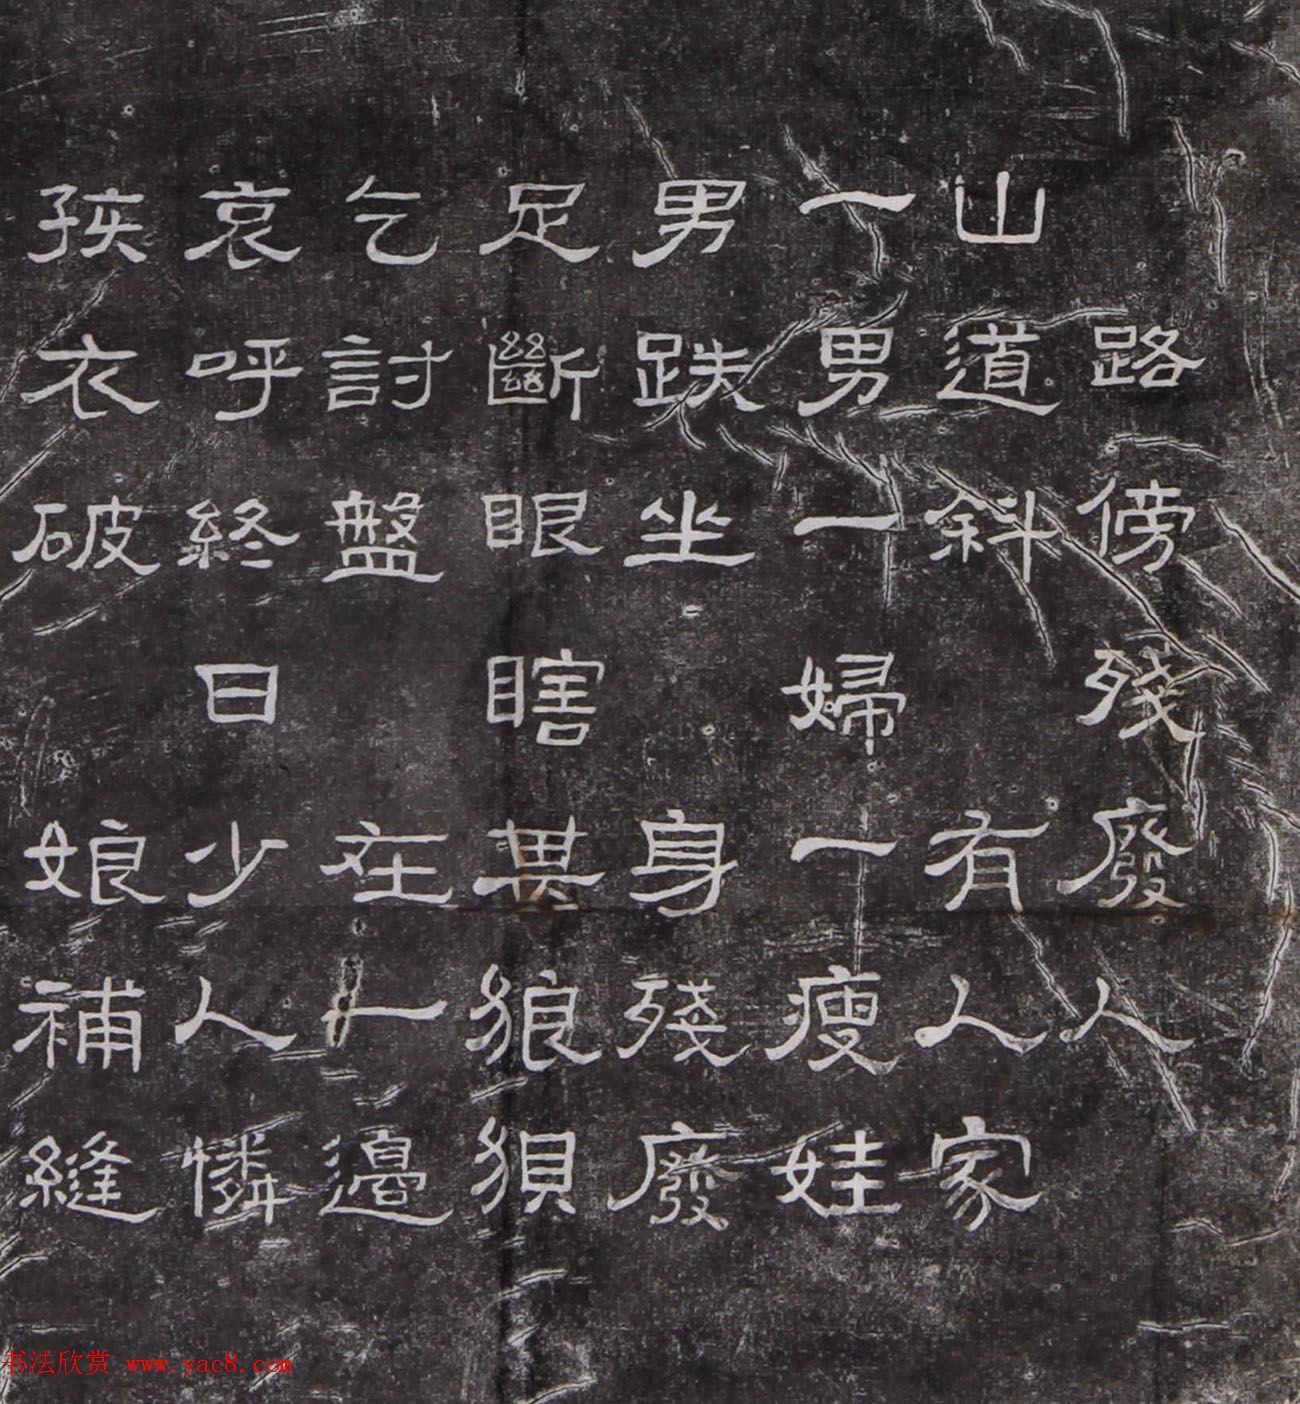 路傍殘廢人
山道斜有人家
一男一婦一瘦娃
男跌坐身殘廢
足斷眼瞎其狼狽
乞討盤在一邊
哀呼終日少人憐
孩衣破娘補縫
书法欣赏 www.yac8.com